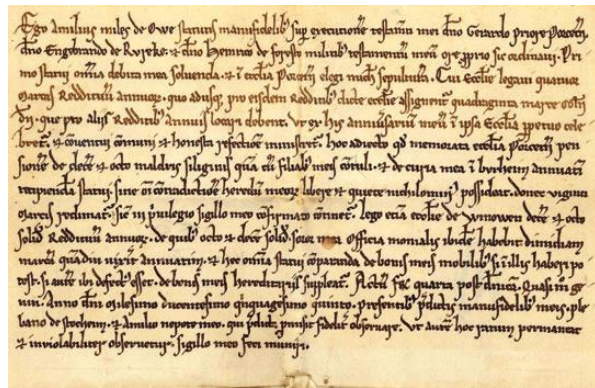 Ego amilius miles de Owe statutis manufidelib; sup executione testam̅ mei dn̅o Gerardo priore Porcet̅n̅.
dn̅o Engebrando de Rureke. ⁊ dn̅o Heinrico de foresto militib; testamentu̅ meu̅ ore pp̅rio sic ordinavi. Pri
mo statui om̅ia debita mea solvenda. ⁊ i̅ eccl̅ia Porcet̅n̅ elegi michi sepultura̅. Cui Eccl̅ie legavi quatuor
marcas Reddituu̅ annuor̅. quo adusq; pro eisdem Redditib; dicte eccl̅ie assignent̅ quadraginta marce colon̅
dn̅. que pro aliis Redditib; annuis locari debent. Ut ex his anniv̅sariu̅ meu̅ i̅ ipsa Eccl̅ia ppetuo cele
bret̅. ⁊ co̅ventui co̅muni ⁊ honesta refectio̅e ministret̅. Hoc adiecto qd̅ memorata eccl̅ia Porcet̅n̅ pen
sione̅ de dece̅ ⁊ octo maldris siliginis qua cu̅ filiab; meis co̅tuli. ⁊ de curia mea i̅ byrheim annuati̅
recipienda̅ statui. sine o̅i contradictio̅e heredu̅ meor̅ libere ⁊ quiete nichilomin; possideat. donec viginti
marcis redimat̅. Sic̅ i̅n p̅vilegio sigillo meo co̅firmato co̅tinet̅. Lego ecia̅ eccl̅ie de Wenowen dece̅ ⁊ octo
solid̅ Reddituu̅ annuor̅. de quib; octo ⁊ dece̅ solid̅. soror mea Officia monialis ibide̅ habebit dimidiam
marca̅ qua̅diu vixerit annuatim. ⁊ hoc om̅ia statui co̅paranda de bonis meis mobilib; si i̅ illis haberi po
test. si aute̅ ibi defect; esset. de boni̅s meis hereditariis suppleat̅. Actu̅ fer̅ quarta post d̅nica̅. Quasi m̅ ge
niti. Anno dn̅i Millesimo ducentesimo quinquagesimo quinto. Presentib; p̅dictis manufidelib; meis. ple
bano de stocheim. ⁊ Amilio nepote meo. qui p̅dicta p̅misit fidelit̅ observare. Ut aute̅ hoc ratum permaneat
⁊ inviolabiliter observetur. sigillo meo feci muniri.